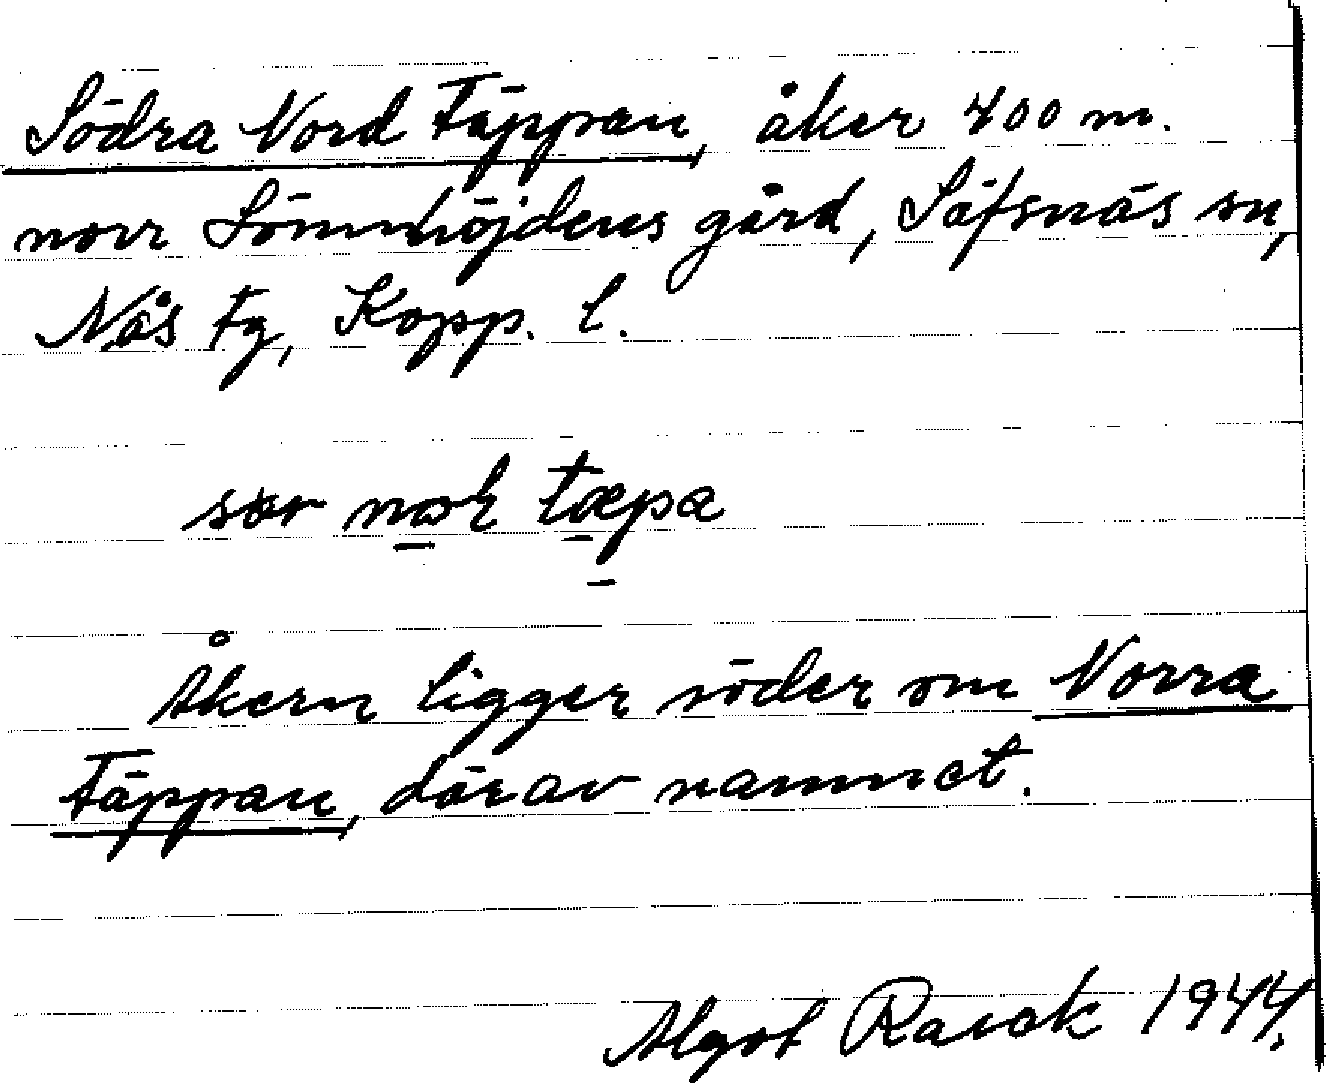 Södra Nord Täppan, åker 400 m.
norr Lömmhöjdens gård, Säfsnäs sn,
Nås tg, Kopp. l.
sør
Åkern ligger söder om Norra
Täppan, därav namnet.
Algot Rask 1944.